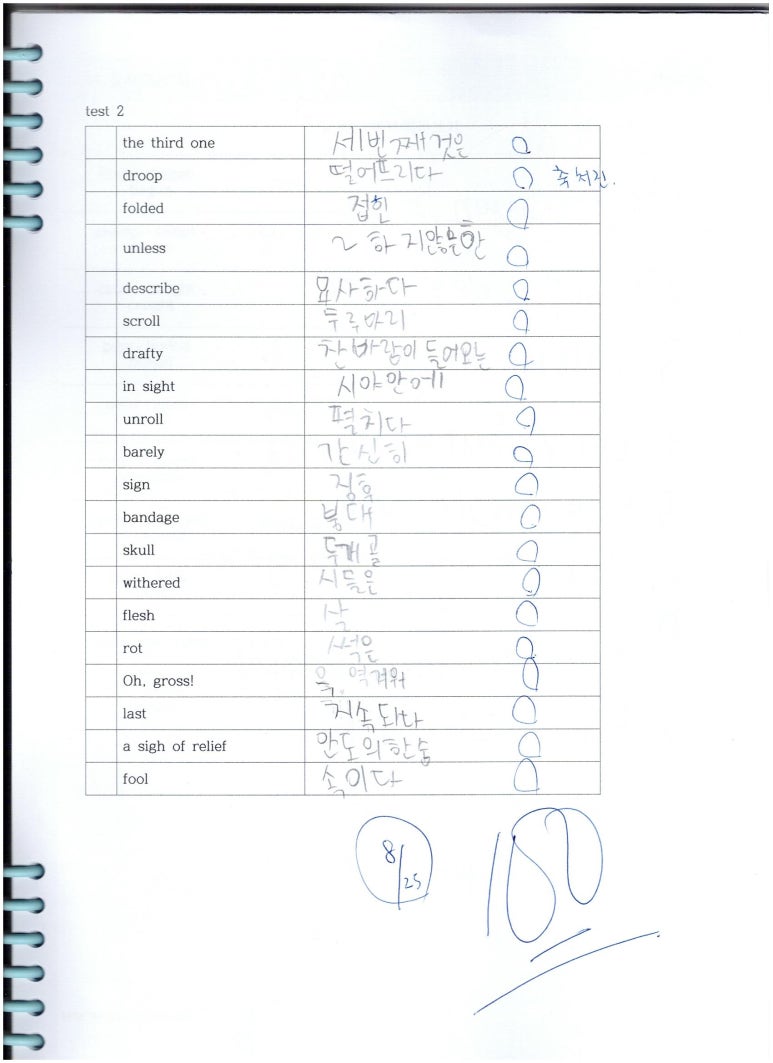 test 2
the third one 세번째것은
droop 떨어프리다 축 처진.
folded 접힌
unless ~ 하지않는한
describe 묘사하다
scroll 두루마리
drafty 찬바람이 들어오는
in sight 시야안에
unroll 펼치다
barely 간신히
sign 징후
bandage 붕대
skull 두개골
withered 시들은
flesh 살
rot 썩은
Oh, gross! 윽. 역겨워
last 지속되다
a sigh of relief 안도의한숨
fool 속이다
8/25 100